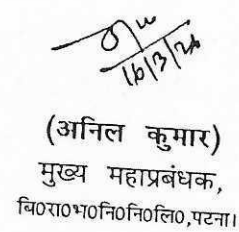 16/3/26
(अनिल कुमार)
मुख्य महाप्रबंधक,
बि०रा०भ०नि०नि०लि०,पटना।